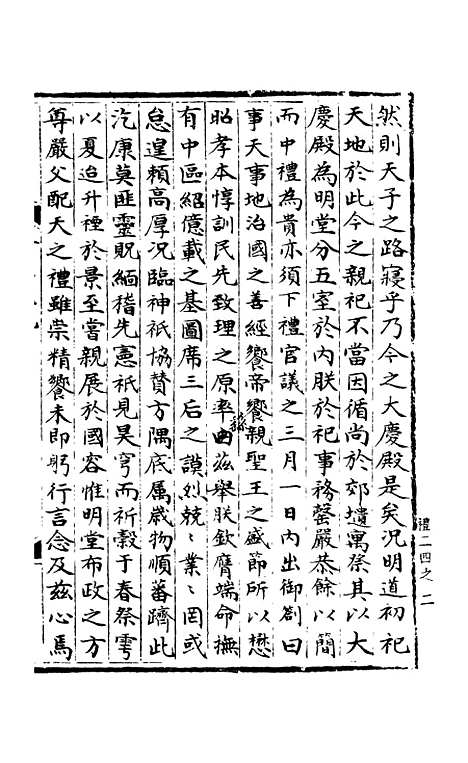 然則天子之路寢乎乃今之大慶殿是矣況明道初祀
天地於此今之親祀不當因循尚於郊壝寓祭其以大
慶殿為明堂分五室於内朕於祀事務罄嚴恭餘以簡
而中禮為貴亦須下禮官議之三月一日内出御劄曰
事天事地治國之善經饗帝饗親聖王之盛節所以懋
昭孝本惇訓民先致理之原率繇茲舉朕欽膺端命撫
有中區紹億載之基圖席三后之謨烈兢〻業〻罔或
怠遑賴高厚況臨神祇協贊方隅底厲歲物順蕃躋此
汔康莫匪靈貺緬稽先憲祇見昊穹而祈穀于春祭雩
以夏迨升禋於景至嘗親展於國容惟明堂布政之方
尊嚴父配天之禮雖崇精饗未即躬行言念及茲心焉
禮二四之二